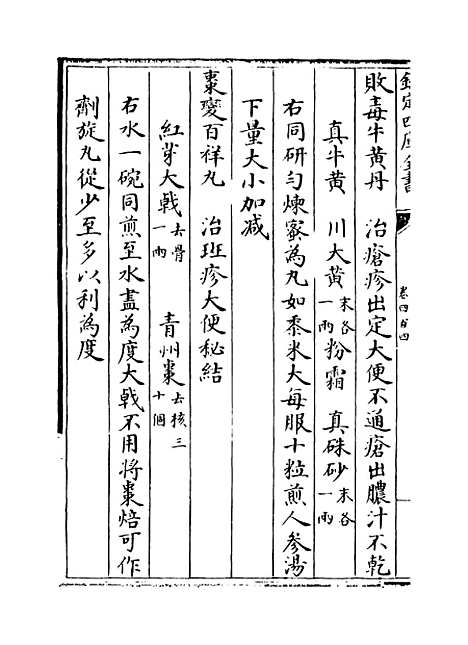 欽定四庫全書
卷四百四
敗毒牛黄丹　治瘡疹出定大便不通瘡出膿汁不乾
真牛黄　川大黄末各一兩粉霜　真硃砂末各一兩
右同研匀煉蜜為丸如黍米大每服十粒煎人參湯
下量大小加减
棗變百祥丸　治班疹大便秘結
紅芽大戟去骨一兩　青州棗去核三十個
右水一碗同煎至水盡為度大戟不用將棗焙可作
劑旋丸從少至多以利為度